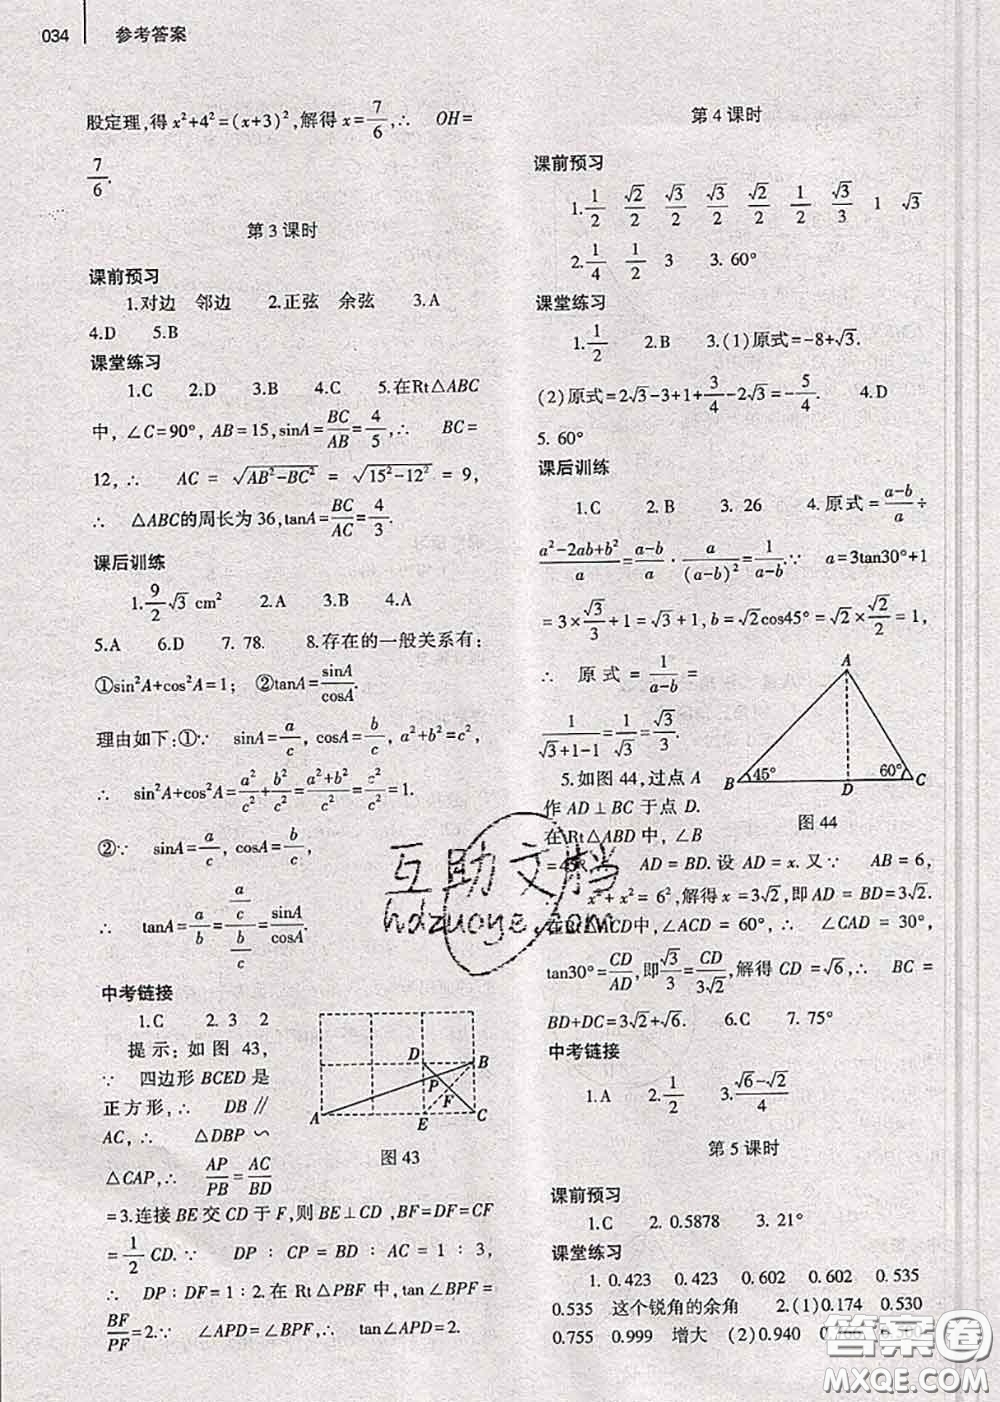 034 参考答案
股定理,得 x²+4²=(x+3)²,解得 x=7/6,∴ OH=
7/6.
第 3 课时
课前预习
1.对边 邻边 2.正弦 余弦 3.A
4.D 5.B
课堂练习
1.C 2.D 3.B 4.C 5.在Rt△ABC
中, ∠C=90°, AB=15, sinA=BC/AB=4/5,∴ BC=
12, ∴ AC = √(AB²-BC²) = √(15²-12²) = 9,
∴ △ABC的周长为 36, tanA=BC/AC=4/3.
课后训练
1.9/2√3 cm² 2.A 3.B 4.A
5.A 6.D 7. 78. 8.存在的一般关系有:
①sin²A+cos²A=1; ②tanA=sinA/cosA.
理由如下:①∵ sinA=a/c, cosA=b/c, a²+b²=c²,
∴ sin²A+cos²A=a²/c²+b²/c²=(a²+b²)/c²=c²/c²=1.
②∵ sinA=a/c, cosA=b/c,
∴ tanA=a/b=(a/c)/(b/c)=sinA/cosA.
中考链接
1.C 2. 3 2
提示: 如 图 43,
∵ 四边形 BCED 是
正方形,∴ DB∥
AC, ∴ △DBP∽
△CAP,∴ AP/PB=AC/BD
=3.连接 BE 交 CD 于 F,则 BE⊥CD ,BF=DF=CF
=1/2 CD.∵ DP : CP = BD : AC = 1 : 3,
∴ DP : DF = 1 : 2.在 Rt△PBF 中, tan∠BPF=
BF/PF=2.∵ ∠APD=∠BPF, ∴ tan∠APD=2.
D B P F A E C
图 43
第 4 课时
课前预习
1.1/2 √2/2 √3/2 √3/2 √2/2 1/2 √3/3 1 √3
2.1/4 1/2 3 3. 60°
课堂练习
1.1/2 2.B 3.(1)原式=-8+√3.
(2)原式=2√3-3+1+3/4-2√3=-5/4. 4.D
5. 60°
课后训练
1.C 2.B 3. 26 4.原式=(a-b)/a÷
(a²-2ab+b²)/a=(a-b)/a·a/(a-b)²=1/(a-b).∵ a=3tan30°+1
=3×√3/3+1=√3+1, b=√2cos45°=√2×√2/2=1,
∴ 原式=1/(a-b)=
1/(√3+1-1)=1/√3=√3/3.
5.如图 44,过点 A
作 AD⊥BC 于点 D.
在 Rt△ABD 中, ∠B
=45°, AD=BD.设 AD=x.又∵ AB=6,
x²+x²=6²,解得 x=3√2,即AD=BD=3√2.
在Rt△ACD中,∠ACD=60°,∴ ∠CAD=30°,
tan30°=CD/AD,即√3/3=CD/(3√2),解得 CD=√6,∴ BC=
BD+DC=3√2+√6. 6.C 7. 75°
A B 45° D 60° C
图 44
中考链接
1.A 2.1/2 3.(√6-√2)/4
第 5 课时
课前预习
1.C 2. 0.5878 3. 21°
课堂练习
1. 0.423 0.423 0.602 0.602 0.535
0.535 这个锐角的余角 2.(1)0.174 0.530
0.755 0.999 增大 (2)0.940
互助文档
hdzuoye.com
答案卷
MXQE.COM